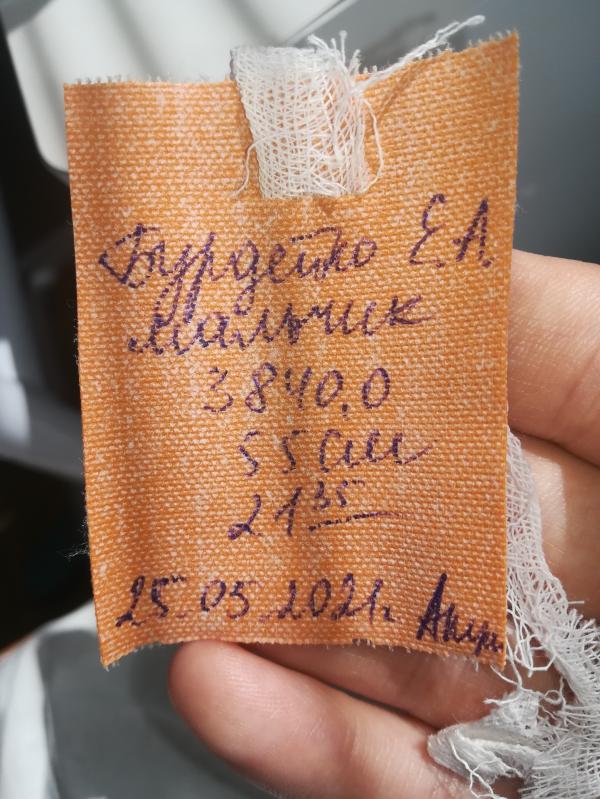 Бурдейко Е.А.
мальчик
3840,0
55 см
21 35
25.05.2021г.